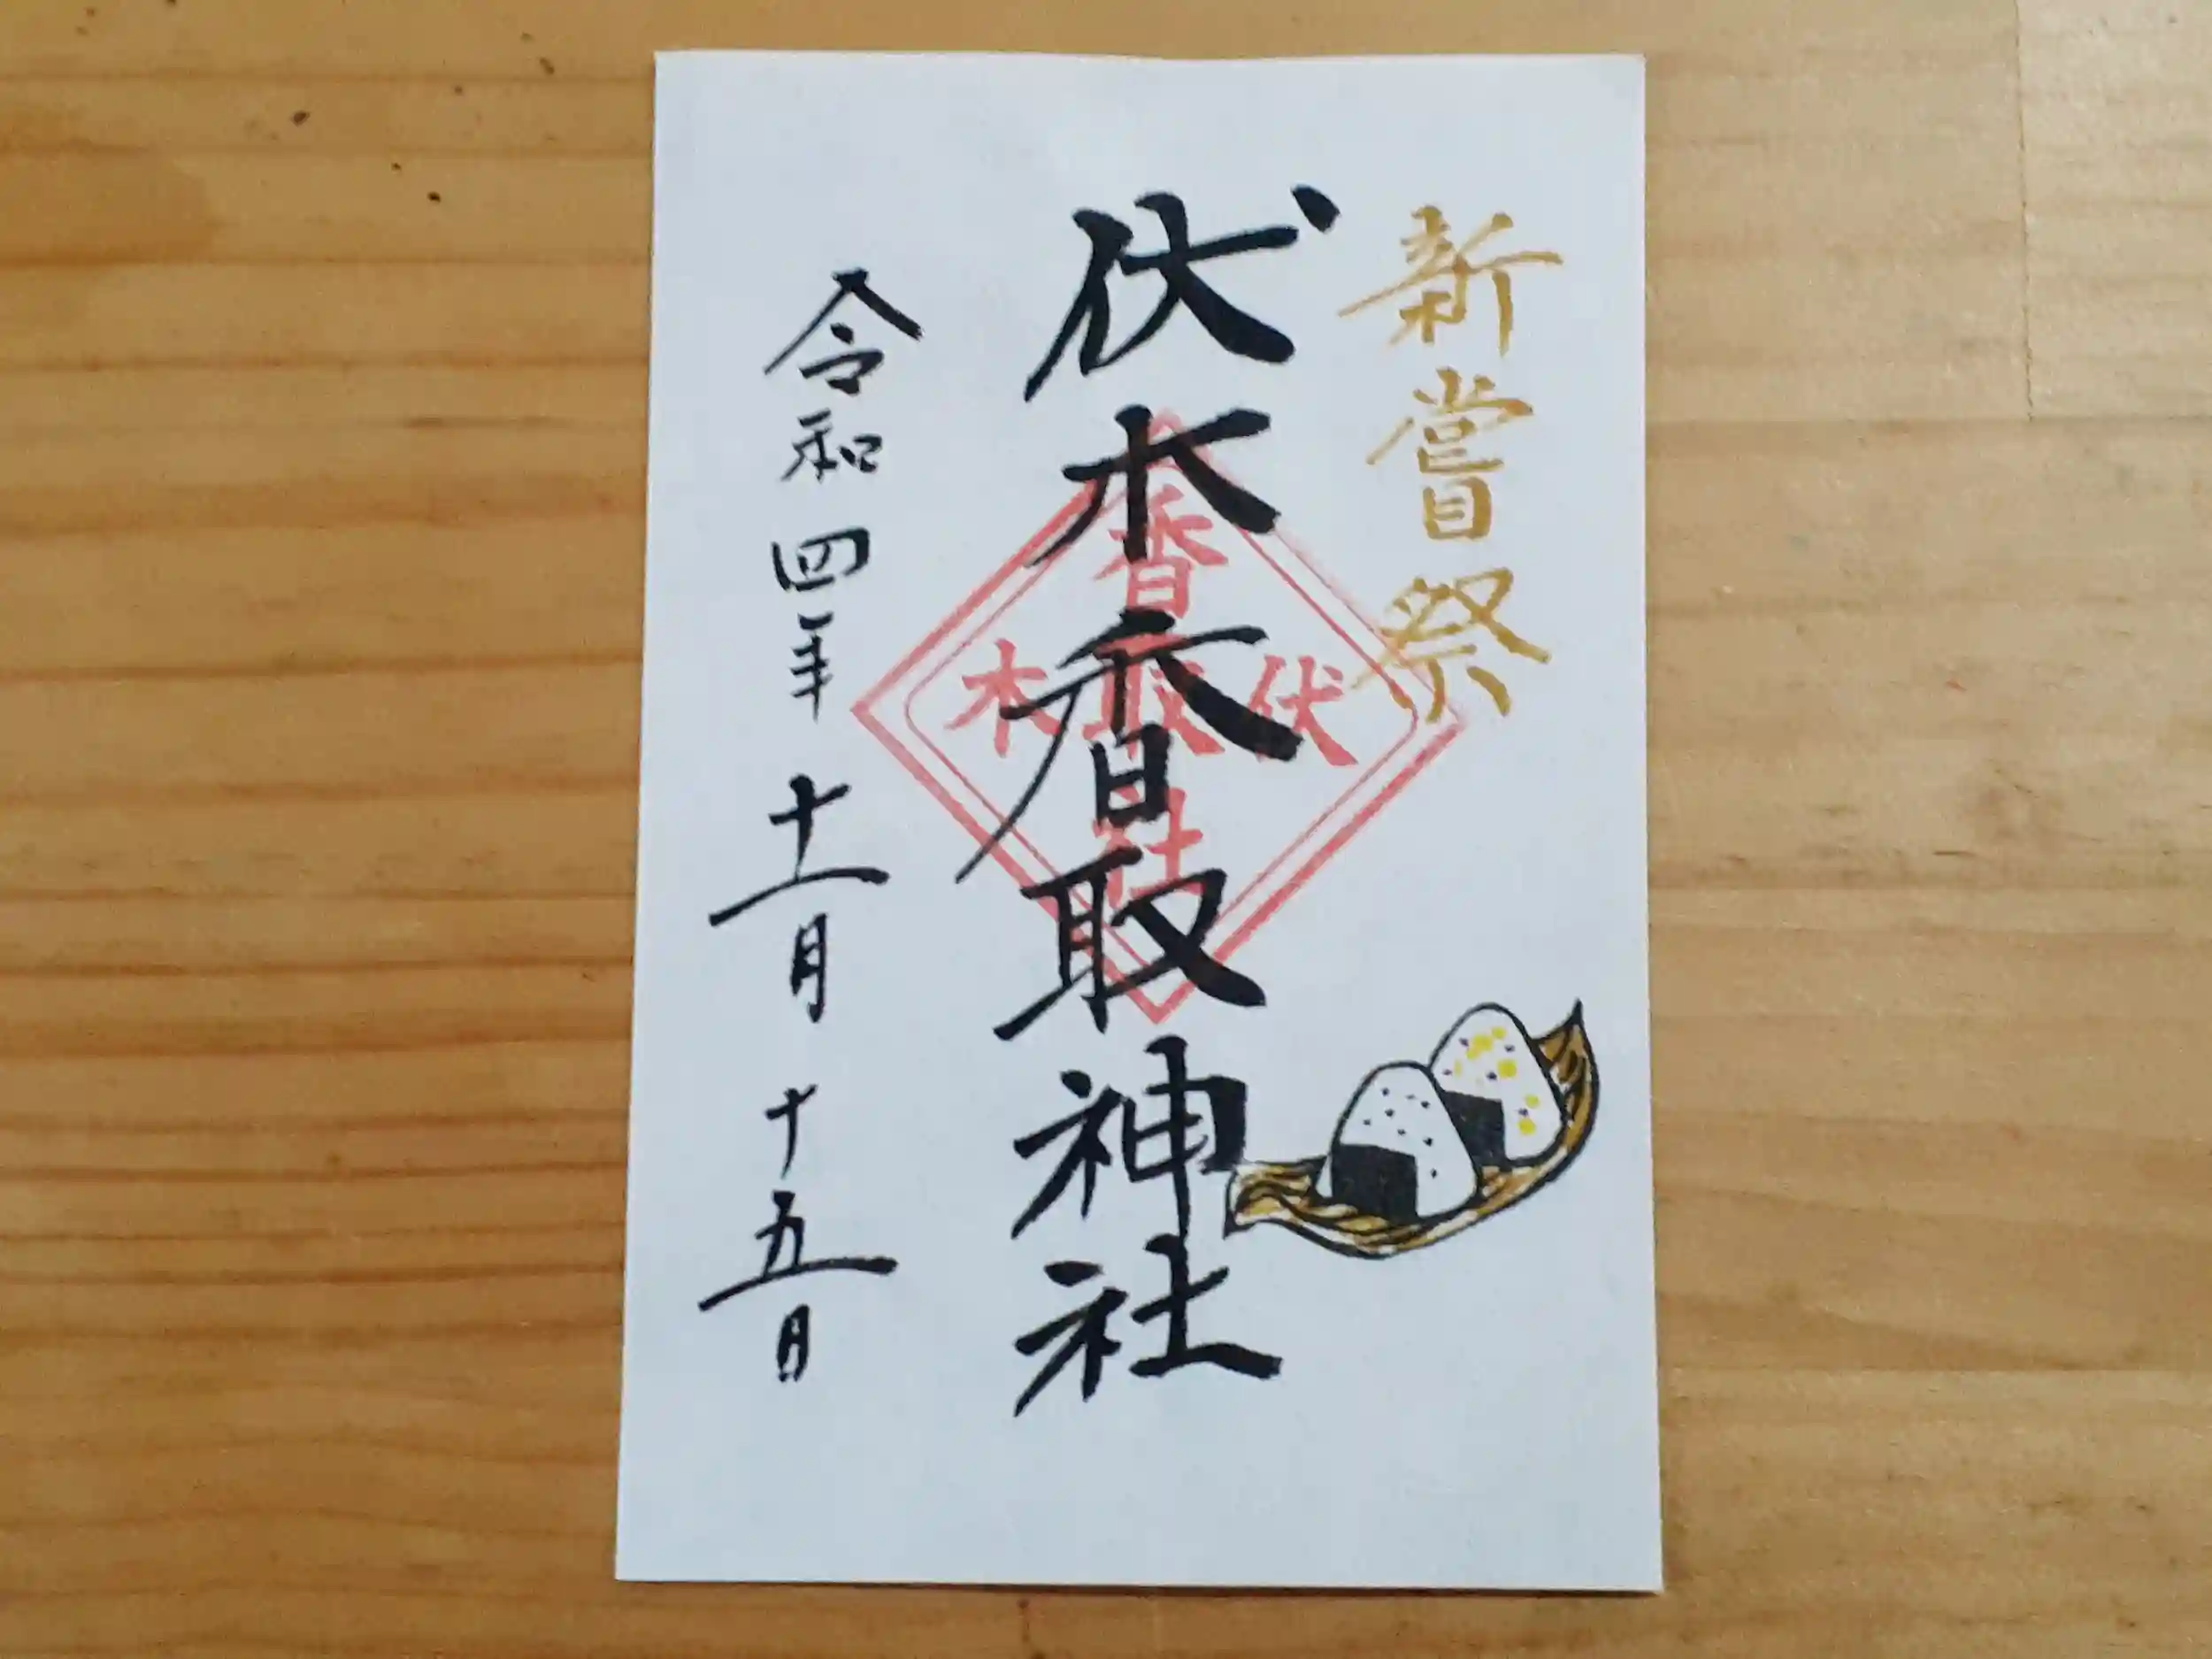 新嘗祭
伏木香取神社
香
伏取木
社
令和四年十一月十五日